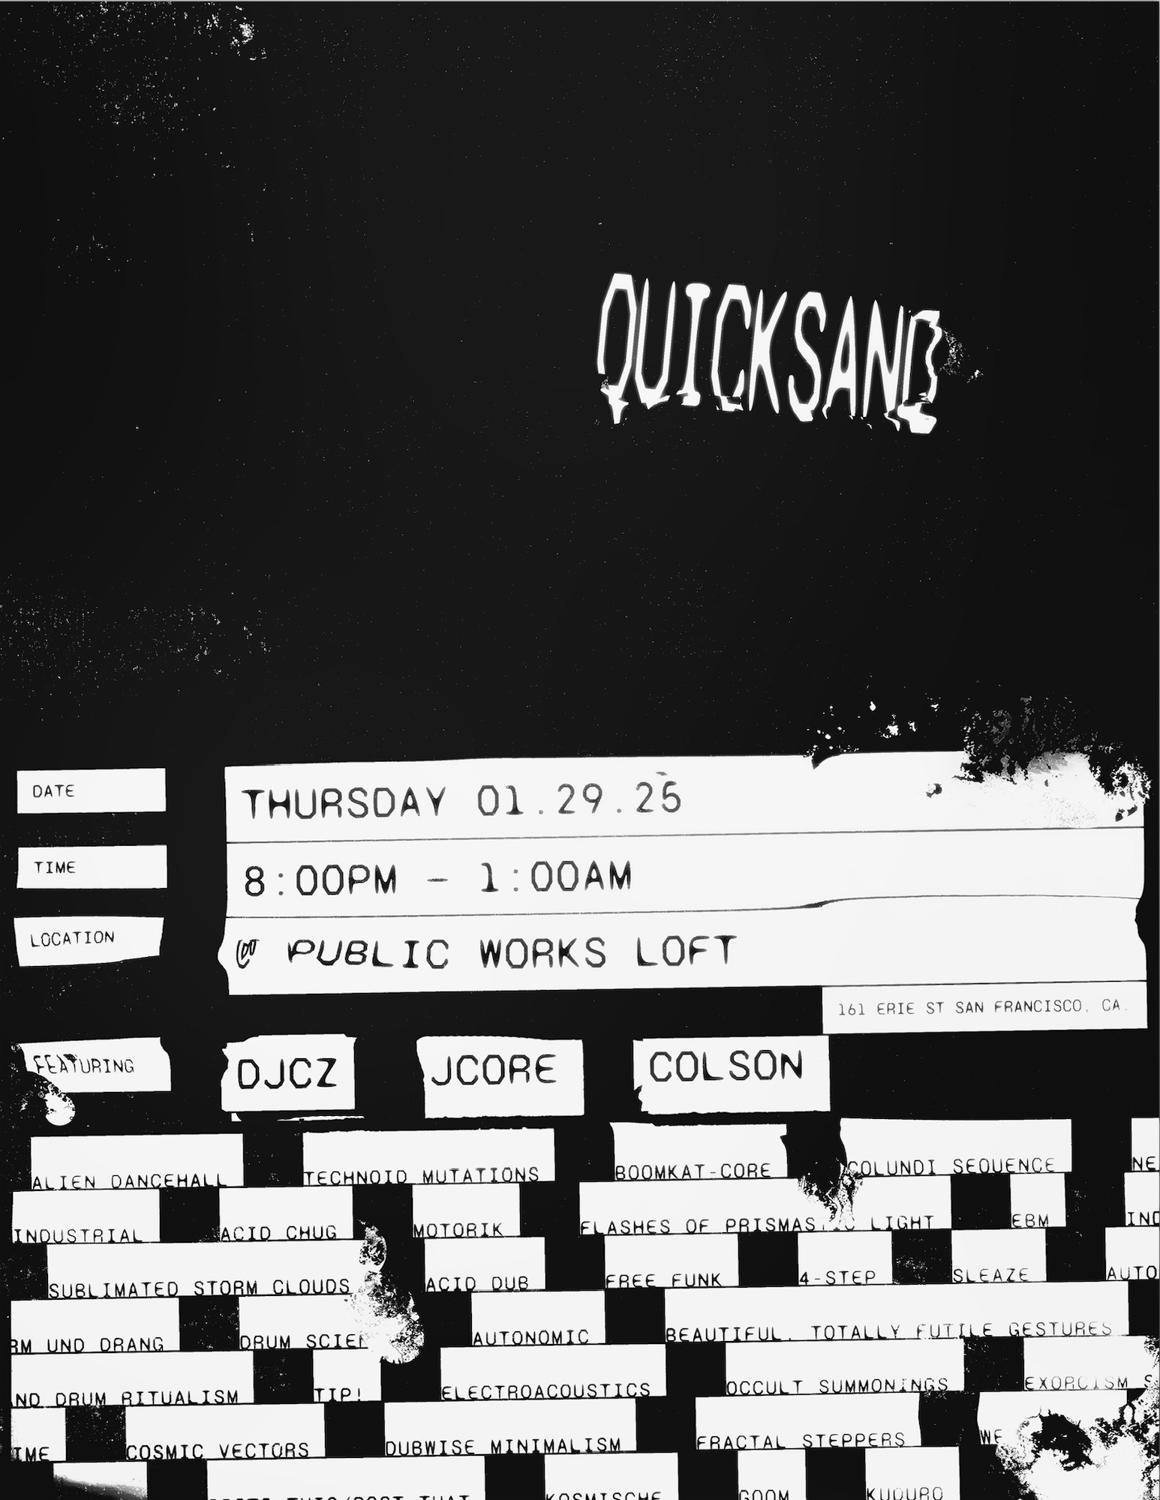 QUICKSAND
DATE THURSDAY 01.29.25
TIME 8:00PM - 1:00AM
LOCATION @ PUBLIC WORKS LOFT
161 ERIE ST SAN FRANCISCO, CA.
FEATURING DJCZ JCORE COLSON
ALIEN DANCEHALL TECHNOID MUTATIONS BOOMKAT-CORE COLUNDI SEQUENCE NE
INDUSTRIAL ACID CHUG MOTORIK FLASHES OF LIGHT EBM IND
SUBLIMATED STORM CLOUDS ACID DUB FREE FUNK 4-STEP SLEAZE AUTO
RM UND DRANG DRUM SCIE AUTONOMIC BEAUTIFUL, TOTALLY FUTILE GESTURES
ND DRUM RITUALISM TIP! ELECTROACOUSTICS OCCULT SUMMONINGS EXORCISM S
IME COSMIC VECTORS DUBWISE MINIMALISM FRACTAL STEPPERS WE
THIS/POST THAT KOSMISCHE GQOM KUDURO